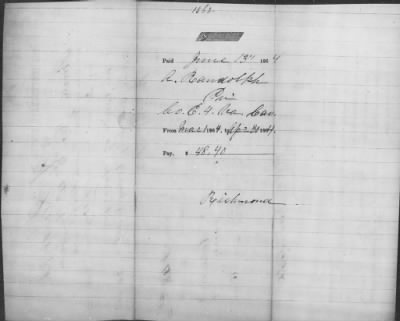 Paid June 13th 1864
A. Randolph
Pri
Co. E. 4. Va. Cav.
From Mar 1 1864, to Apr 30 1864.
Pay, $ 48.40
Richmond